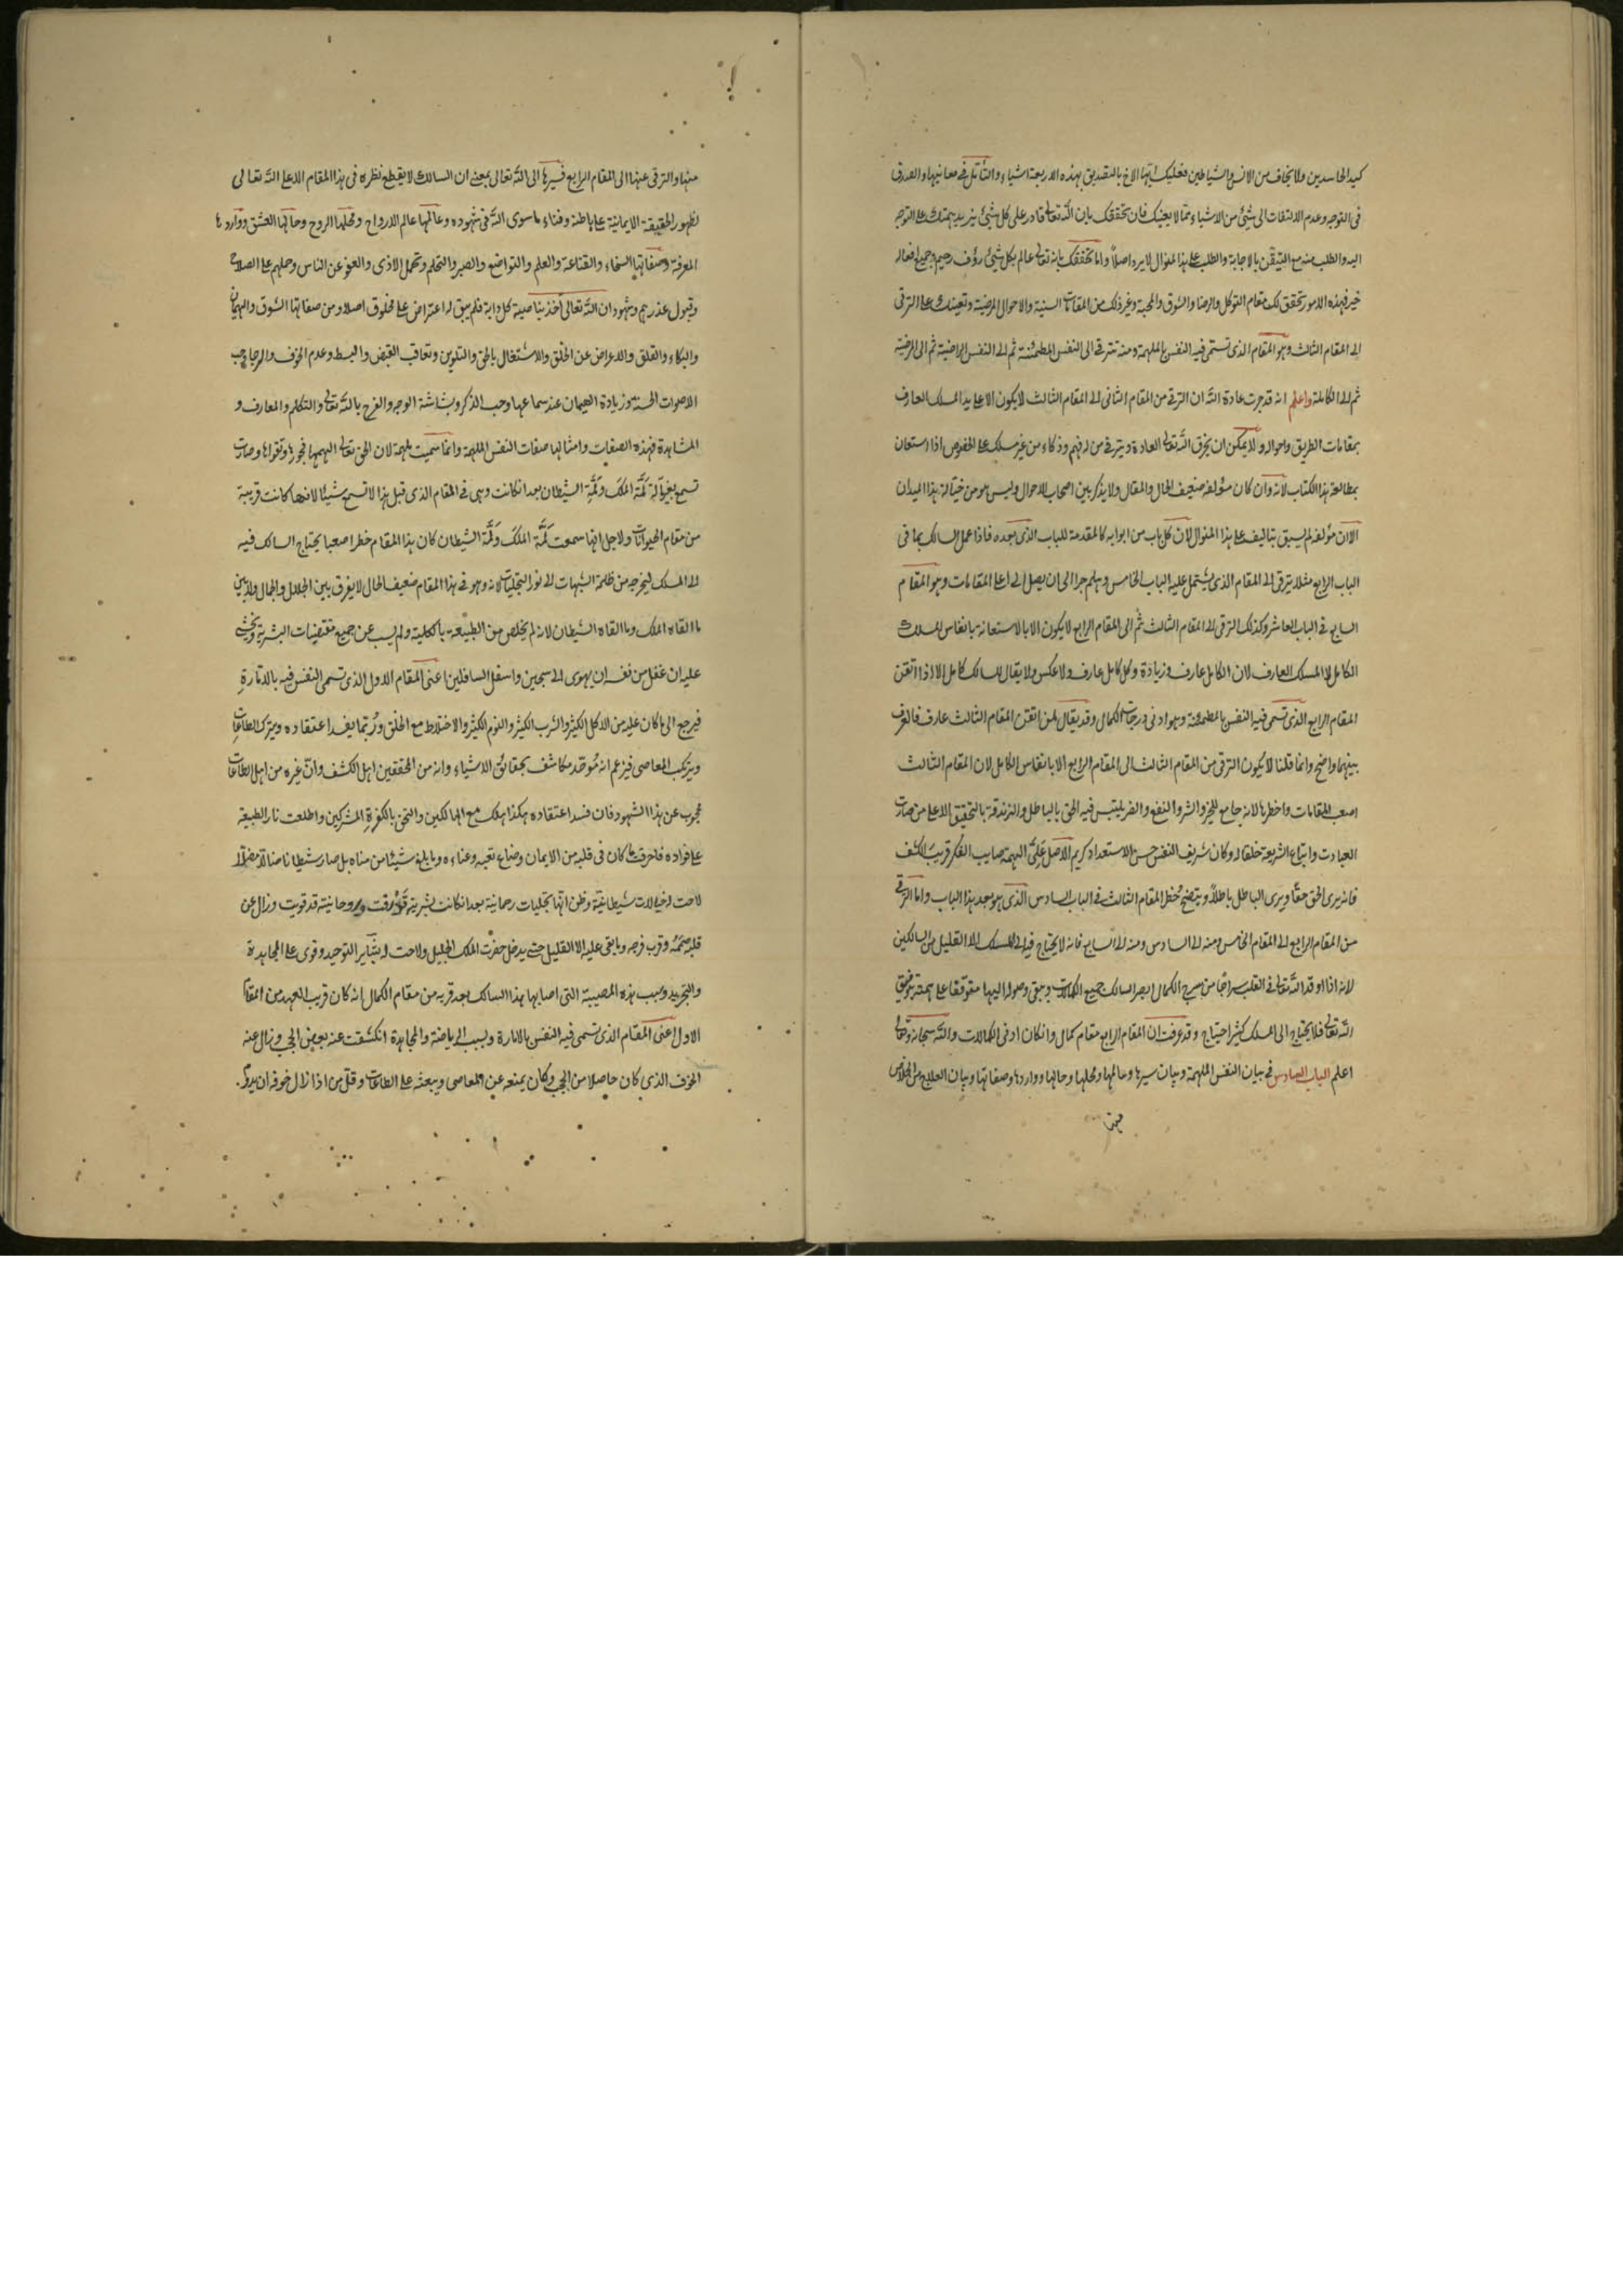 كيد الحاسدين وما يخاف من الانس والشياطين فعليك ايها الاخ بالتصديق بهذه الاربعة اشياء والتأمل فى معانيها والصدق
فى التوجه وعدم الالتفات الى شئ من الاشياء مما لا يعنيك فان تحققك بان الله تعالى قادر على كل شئ يزيد همتك على التوجه
اليه والطلب منه مع التيقن بالاجابة والطلب على هذا المنوال لا يرد اصلاً واما تحققك بانه تعالى عالم بكل شئ رؤف رحيم وجميع افعاله
خير فهذه الامور تحقق لك مقام التوكل والرضا والشوق والمحبة وغير ذلك من المقامات السنية والاحوال المرضية وتعينك على الترقى
الى المقام الثالث وهو المقام الذى تسمى فيه النفس بالملهمة ومنه تترقى الى النفس المطمئنة ثم الى النفس الراضية ثم الى المرضية
ثم الى الكاملة واعلم انه قد جرت عادة الله ان الترقى من المقام الثانى الى المقام الثالث لا يكون الا على يد المسلك العارف
بمقامات الطريق واحواله ولا يمكن ان يخرق الله تعالى العادة ويترقى من له فهم وذكاء من غير مسلك على الخصوص اذا استعان
بمطالعة هذا الكتاب لأنه وان كان مؤلفه ضعيف الحال والمقال ولا يذكر بين اصحاب الاحوال وليس هو من خيالة هذا الميدان
الا ان مؤلفه لم يسبق بتاليف على هذا المنوال لان كل باب من ابوابه كالمقدمة للباب الذى بعده فاذا عمل السالك بما فى
الباب الرابع مثلا يترقى الى المقام الذى يشتمل عليه الباب الخامس وهلم جرا الى ان يصل الى اعلى المقامات وهو المقام
السابع فى الباب العاشر وكذلك الترقى الى المقام الثالث ثم الى المقام الرابع لا يكون الا بالاستعانة بانفاس المسلك
الكامل لا المسلك العارف لان الكامل عارف وزيادة وكل كامل عارف ولا عكس ولا يقال للسالك كامل الا اذا اتقن
المقام الرابع الذى تسمى فيه النفس بالمطمئنة وهو ادنى درجات الكمال وقد يقال لمن اتقن المقام الثالث عارف فالفرق
بينهما واضح وانما قلنا لا يكون الترقى من المقام الثالث الى المقام الرابع الا بانفاس الكامل لان المقام الثالث
اصعب المقامات واخطرها لانه جامع للخير والشر والنفع والضر يلتبس فيه الحق بالباطل والزندقة بالتحقيق الا على من صارت
العبادت واتباع الشريعة خلقا له وكان شريف النفس حسن الاستعداد كريم الاصل علىّ الهمة صايب الفكر قريب الكشف
فانه يرى الحق حقًا ويرى الباطل باطلاً ويتضح خطر المقام الثالث فى الباب السادس الذى هو بعد هذا الباب واما الترقى
من المقام الرابع الى المقام الخامس ومنه الى السادس ومنه الى السابع فانه لا يحتاج فيه الى المسلك الا القليل من السالكين
لانه اذا اوقد الله تعالى فى القلب سراجًا من سرج الكمال ابصر السالك جميع الكمالات وبقى وصوله اليها متوقفا على همته بتوفيق
الله تعالى فلا يحتاج الى المسلك كثير احتياج وقد عرفت ان المقام الرابع مقام كمال وان كان ادنى الكمالات والله سبحانه وتعالى
اعلم الباب السادس فى بيان النفس الملهمة وبيان سيرها وعالمها ومحلها وحالها وواردها وصفاتها وبيان العلاج من الخلاص
منها
منها والترقى عنها الى المقام الرابع فسيرها الى الله تعالى بمعنى ان السالك لا يقطع نظره فى هذا المقام الا على الله تعالى
لظهور الحقيقة الايمانية على باطنه وفناء ما سوى الله فى شهوده وعالمها عالم الارواح ومحلها الروح وحالها العشق وواردها
المعرفة وصفاتها السخاء والقناعة والعلم والتواضع والصبر والتحلم وتحمل الاذى والعفو عن الناس وحملهم على الصلاح
وقبول عذرهم وشهود ان الله تعالى آخذ بناصية كل دابة فلم يبق له اعتراض على مخلوق اصلا ومن صفاتها الشوق والهيمان
والبكاء والقلق والاعراض عن الخلق والاشتغال بالحق والتلوين وتعاقب القبض والبسط وعدم الخوف والرجا وحب
الاصوات الحسنة وزيادة الهيمان عند سماعها وحب الذكر وبشاشة الوجه والفرح بالله تعالى والتكلم والمعارف و
المشاهدة فهذه الصفات وامثالها صفات النفس الملهمة وانما سميت ملهمة لان الحق تعالى الهمها فجورها وتقواها وصارت
تسمع بغير آلة لَمَّة الملك ولَمَّة الشيطان بعد ان كانت وهى فى المقام الذى قبل هذا لا تسمع شيئا لانها كانت قريبة
من مقام الحيوانات ولاجل انها سمعت لَمَّة الملك ولَمَّة الشيطان كان هذا المقام خطرا صعبا يحتاج السالك فيه
الى المسلك ليخرجه من ظلمة الشبهات الى نور التجليات لانه وهو فى هذا المقام ضعيف الحال لا يفرق بين الجلال والجمال ولا بين
ما القاه الملك وما القاه الشيطان لانه لم يخلص من الطبيعة بالكلية ولم يسب عن جميع مقتضيات البشرية ويخشى
عليه ان غفل من نفسه ان يهوى الى سجين واسفل السافلين اعنى المقام الاول الذى تسمى النفس فيه بالامّارةِ
فيرجع الى ما كان عليه من الاكل الكثير والشرب الكثير والنوم الكثير والاختلاط مع الخلق ورُبّما يفسد اعتقاده ويترك الطاعات
ويرتكب المعاصى فيزعم انه مُوحّد مكاشف بحقائق الاشياء وانه من المحققين اهل الكشف وانّ غيره من اهل الطاعات
محجوب عن هذا الشهود فان فسد اعتقاده هكذا هلك مع الهالكين والتحق بالكفرةِ المشركين واطلعت نار الطبيعة
على فواده فاحرقت ما كان فى قلبه من الايمان وضاع تعبه وعناءه وما بلغ شيئا من مناه بل صار شيطانا ضالا مضلاً
لاحت له خيالات شيطانية وظن انها تجليات رحمانية بعد ان كانت بشريته قد رقت وروحانيته قد قويت وزال عن
قلبه صَمَمُهُ وقرب فرجه وما بقى عليه الا القليل حتى يدخل حضرت الملك الجليل ولاحت له بشاير التوحيد وقوى على المجاهدة
والتجريد وسبب هذه المصيبة التى اصابها هذا السالك بعد قربه من مقام الكمال انه كان قريب العهد من المقام
الاول اعنى المقام الذى تسمى فيه النفس بالامارة وبسبب الرياضة والمجاهدة انكشفت عنه بعض الحجب وزال عنه
الخوف الذى كان حاصلا من الحجب وكان يمنعه عن المعاصى ويبعثه على الطاعات وقلّ من اذا زال خوفه ان يدوم